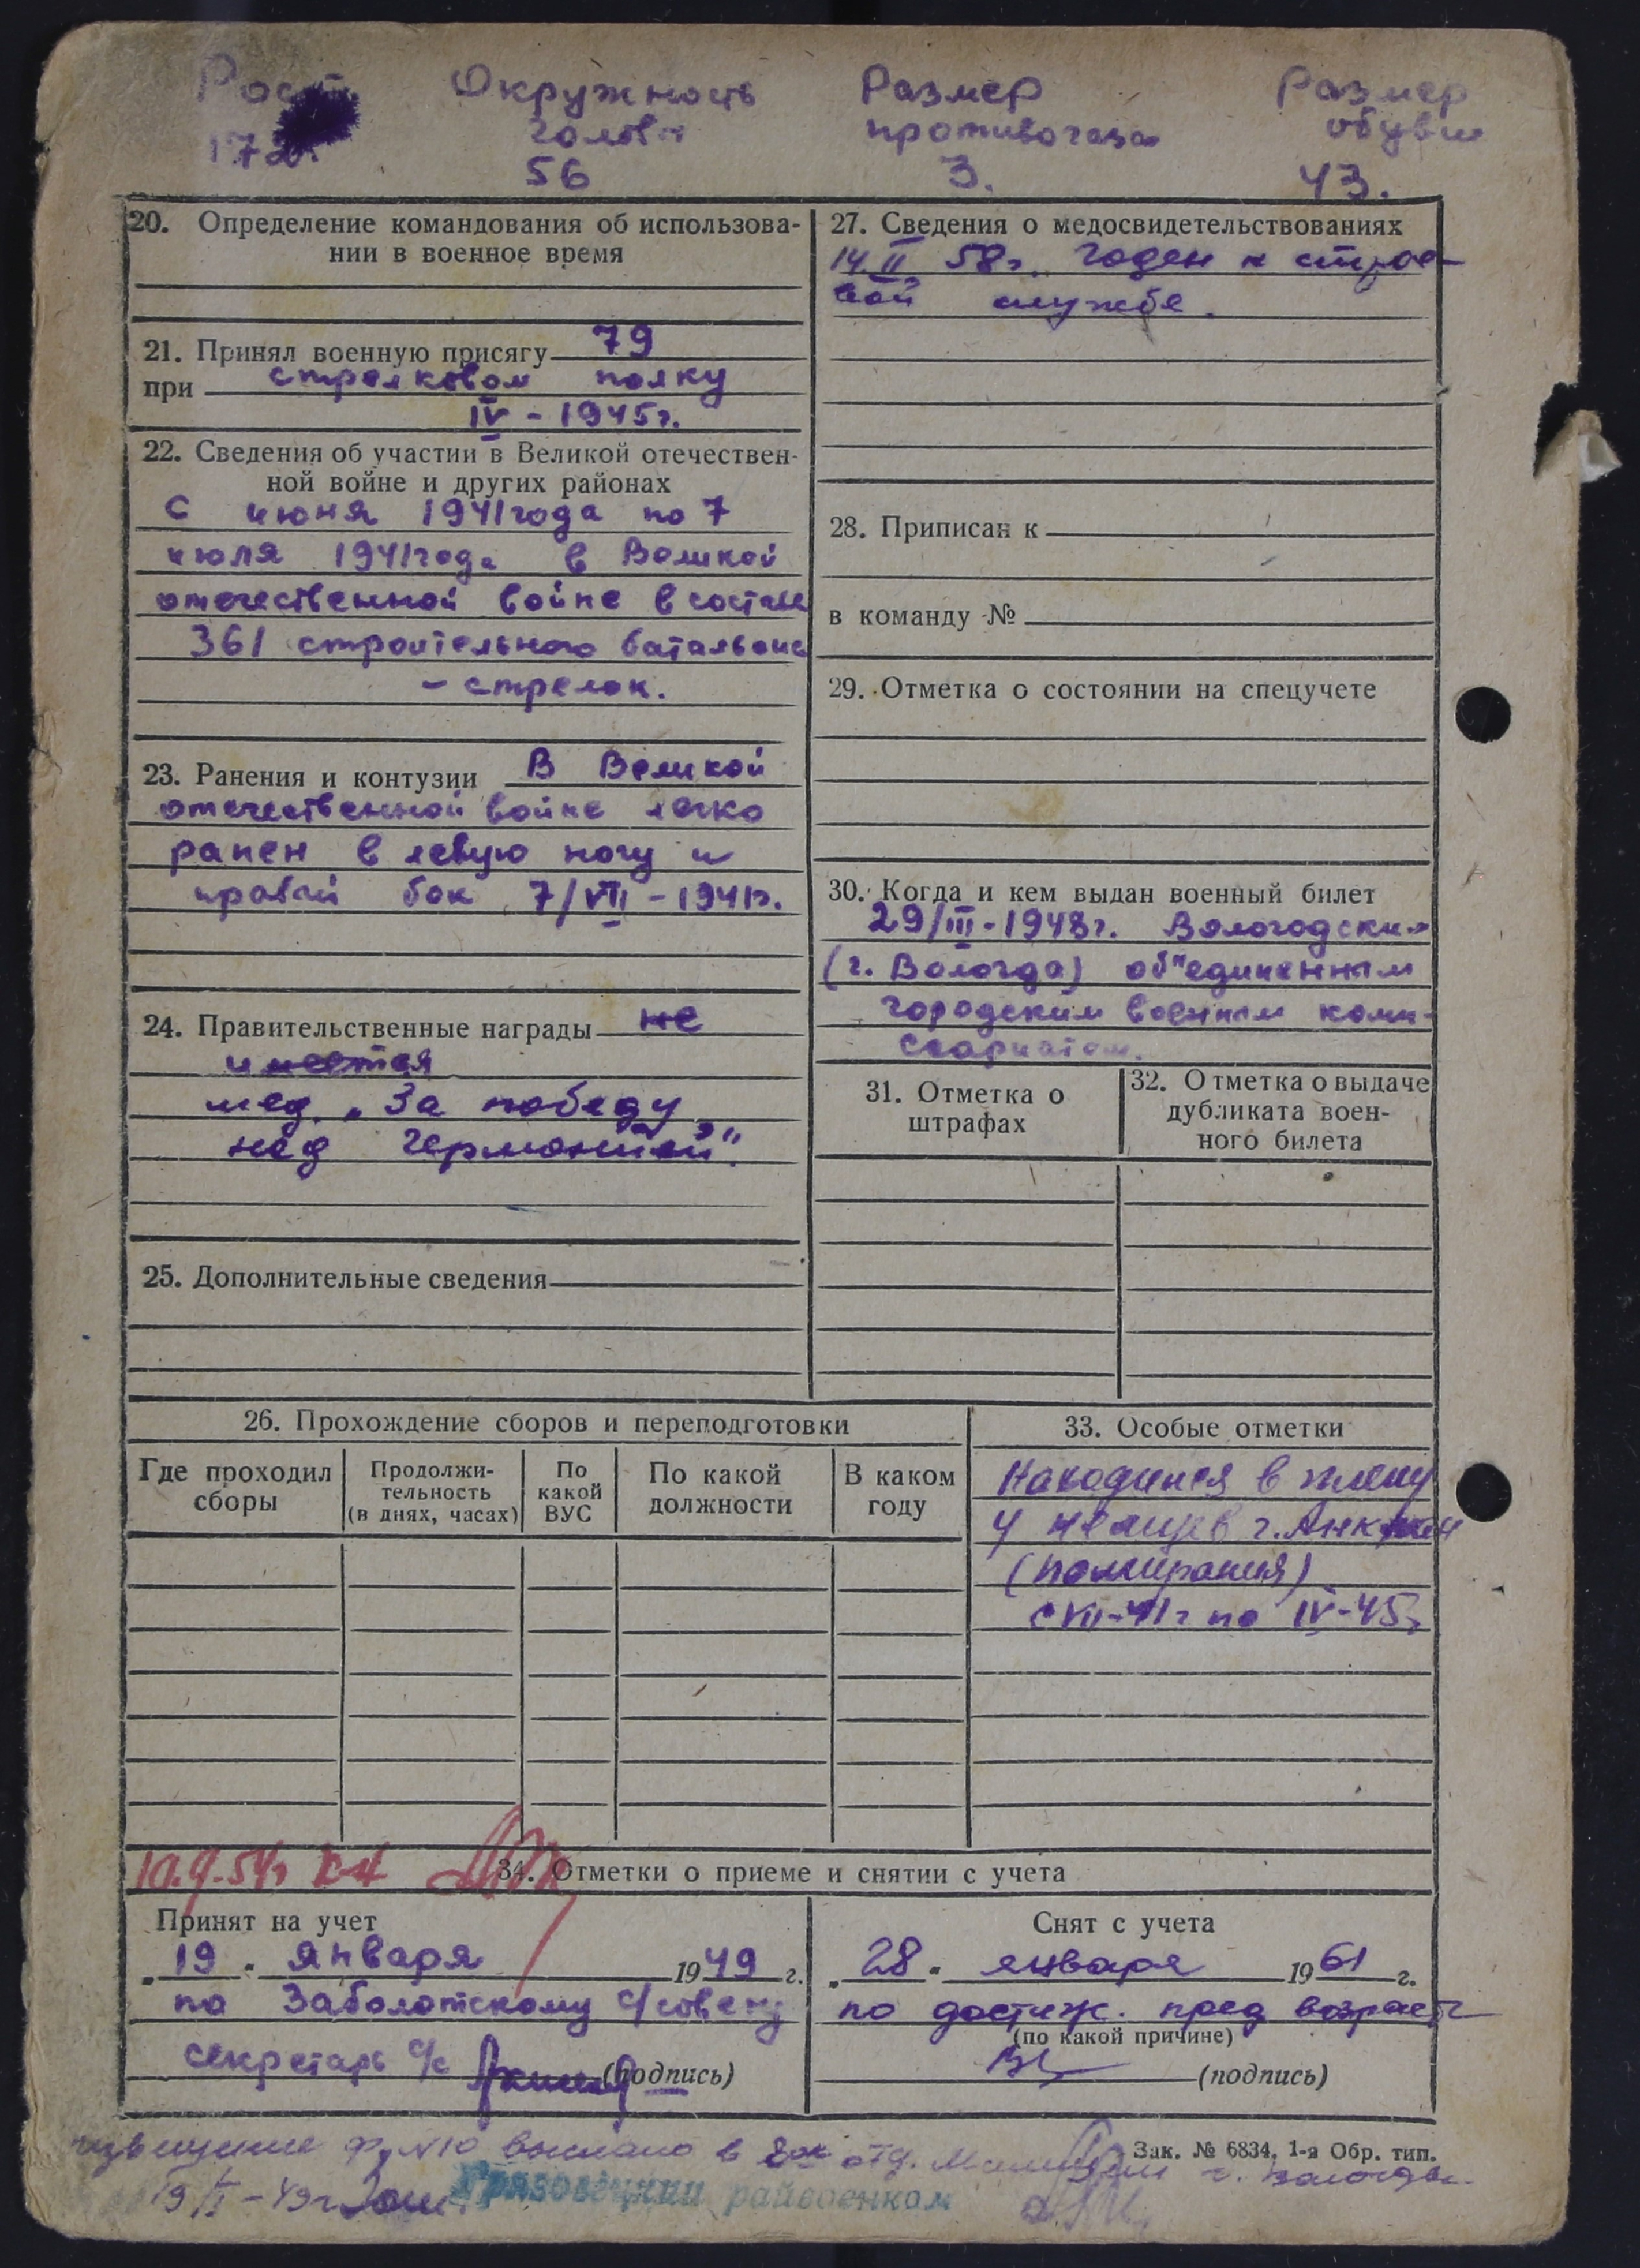 Рост Окружность Размер Размер
головы противогаза обуви
172. 56 3. 43.
20. Определение командования об использова-
нии в военное время
21. Принял военную присягу 79
при стрелковом полку
IV - 1945г.
22. Сведения об участии в Великой отечествен-
ной войне и других районах
С июня 1941 года по 7
июля 1941 года в Великой
отечественной войне в составе
361 строительного батальона
- стрелок.
23. Ранения и контузии В Великой
отечественной войне легко
ранен в левую ногу и
правый бок 7/VII - 1941г.
24. Правительственные награды не
имеется
мед. „За победу
над германией".
25. Дополнительные сведения
27. Сведения о медосвидетельствованиях
14.II 58г. годен к строе-
вой службе.
28. Приписан к
в команду №
29. Отметка о состоянии на спецучете
30. Когда и кем выдан военный билет
29/III - 1948г. Вологодским
(г. Вологда) об"единенным
городским военным коми-
ссариатом.
31. Отметка о
штрафах
32. Отметка о выдаче
дубликата воен-
ного билета
26. Прохождение сборов и переподготовки
Где проходил
сборы
Продолжи-
тельность
(в днях, часах)
По
какой
ВУС
По какой
должности
В каком
году
33. Особые отметки
Находился в плену
у немцев г.
(Померания)
с VII-41г по IV-45г
34. Отметки о приеме и снятии с учета
Принят на учет
„19" января 1949 г.
по Заболотскому с/совету
секретарь с/с (подпись)
Снят с учета
„28" января 1961 г.
по достиж. пред возраста
(по какой причине)
(подпись)
Зак. № 6834, 1-я Обр. тип.
извещение ф. №10 выслано в 8ое отд. Милиции г. Вологды.
19/I - 49г.
Грязовецкий райвоенком